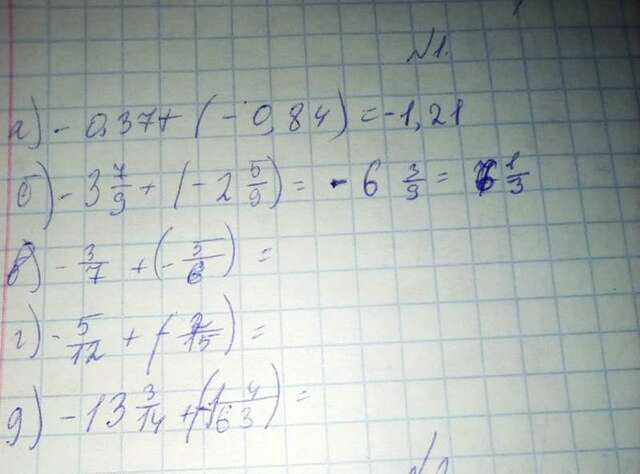 №1.
а) - 0,37 + (- 0,84) = -1,21
б) - 3 7/9 + (- 2 5/9) = - 6 3/9 = 6 1/3
в) - 3/7 + (- 5/6) =
г) - 5/12 + (- /15) =
д) - 13 3/14 + (- 4/63) =